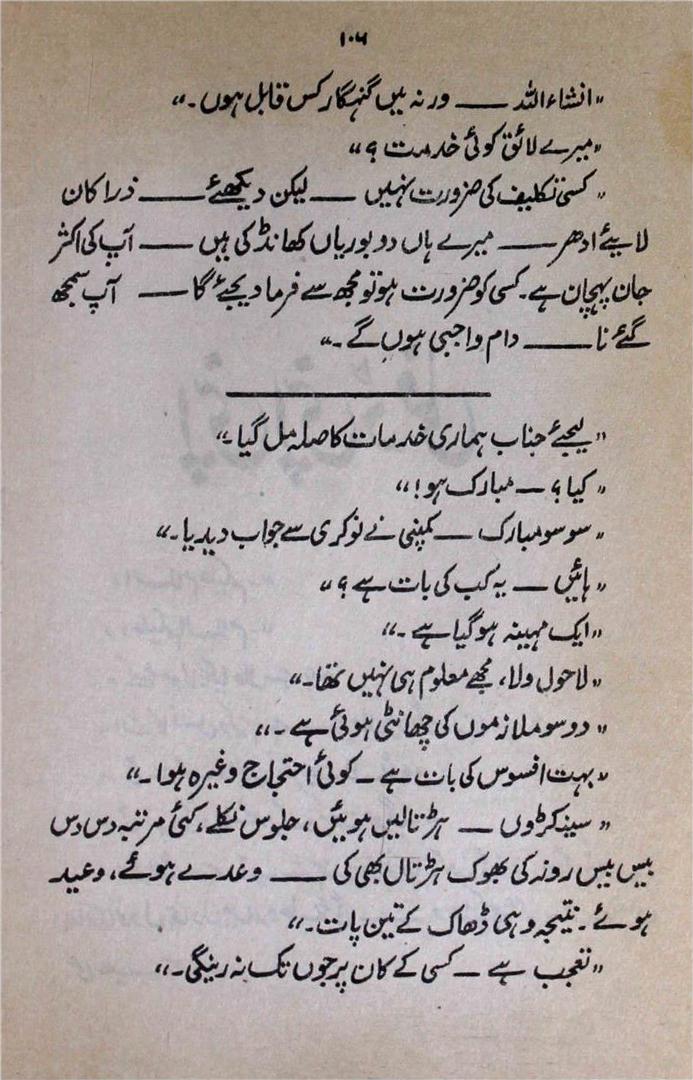 ۱۰۶
"انشاء اللہ ــــ ورنہ میں گنہگار کس قابل ہوں۔"
"میرے لائق کوئی خدمت؟"
"کسی تکلیف کی ضرورت نہیں ــــ لیکن دیکھئے ــــ ذرا کان
لایئے ادھر ــــ میرے ہاں دو بوریاں کھانڈ کی ہیں ــــ آپ کی اکثر
جان پہچان ہے۔ کسی کو ضرورت ہو تو مجھ سے فرما دیجئے گا ــــ آپ سمجھ
گئے نا ــــ دام واجبی ہوں گے۔"
"لیجئے جناب ہماری خدمات کا صلہ مل گیا۔"
"کیا؟ ــ مبارک ہو!"
"سو سو مبارک ــــ کمپنی نے نوکری سے جواب دیدیا۔"
"ہائیں ــ یہ کب کی بات ہے؟"
"ایک مہینہ ہو گیا ہے۔"
"لاحول ولا، مجھے معلوم ہی نہیں تھا۔"
"دو سو ملازموں کی چھانٹی ہوئی ہے۔"
"بہت افسوس کی بات ہے ــ کوئی احتجاج وغیرہ ہوا۔"
"سینکڑوں ــــ ہڑتالیں ہوئیں، جلوس نکلے، کئی مرتبہ دس دس
بیس بیس روز کی بھوک ہڑتال بھی کی ــــ وعدے ہوئے، وعید
ہوئے۔ نتیجہ وہی ڈھاک کے تین پات۔"
"تعجب ہے ــ کسی کے کان پر جوں تک نہ رینگی۔"